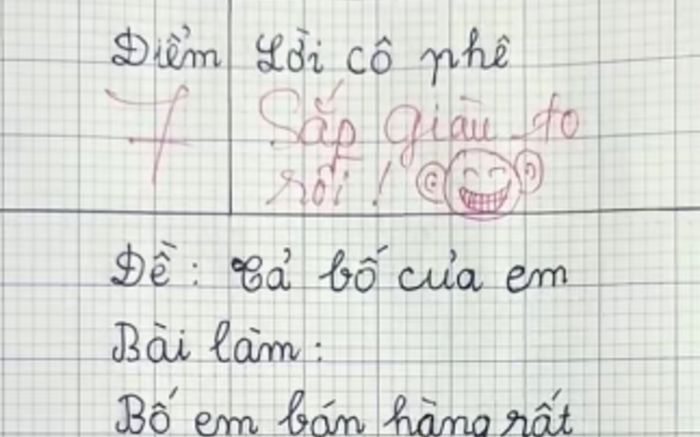 Điểm Lời cô phê
7 Sắp giàu to
rồi!
Đề: Tả bố của em
Bài làm:
Bố em bán hàng rất